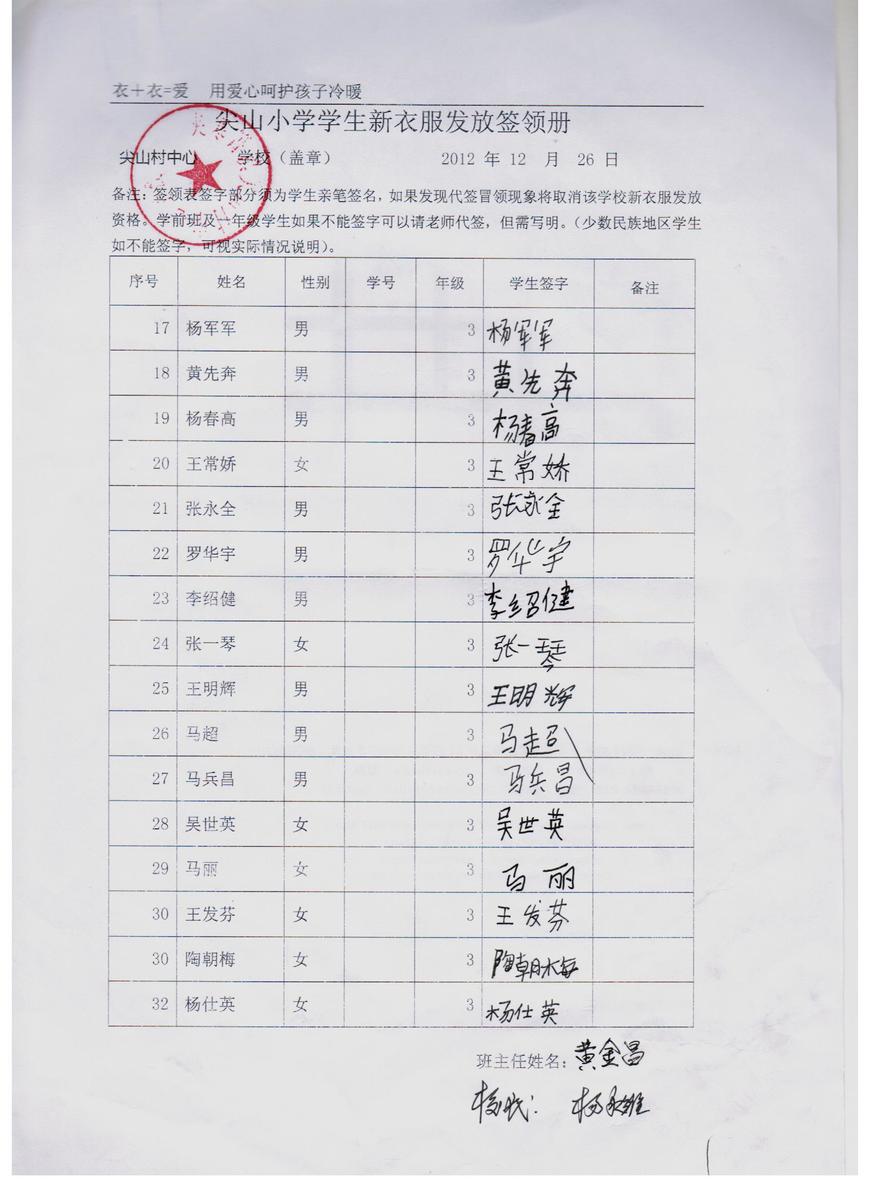 衣+衣=爱 用爱心呵护孩子冷暖
尖山小学学生新衣服发放签领册
尖山村中心 学校（盖章） 2012 年 12 月 26 日
备注：签领表签字部分须为学生亲笔签名，如果发现代签冒领现象将取消该学校新衣服发放
资格。学前班及一年级学生如果不能签字可以请老师代签，但需写明。（少数民族地区学生
如不能签字，可视实际情况说明）。
序号 姓名 性别 学号 年级 学生签字 备注
17 杨军军 男 3 杨军军
18 黄先奔 男 3 黄先奔
19 杨春高 男 3 杨春高
20 王常娇 女 3 王常娇
21 张永全 男 3 张永全
22 罗华宇 男 3 罗华宇
23 李绍健 男 3 李绍健
24 张一琴 女 3 张一琴
25 王明辉 男 3 王明辉
26 马超 男 3 马超
27 马兵昌 男 3 马兵昌
28 吴世英 女 3 吴世英
29 马丽 女 3 马丽
30 王发芬 女 3 王发芬
30 陶朝梅 女 3 陶朝梅
32 杨仕英 女 3 杨仕英
班主任姓名：黄金昌
校长：